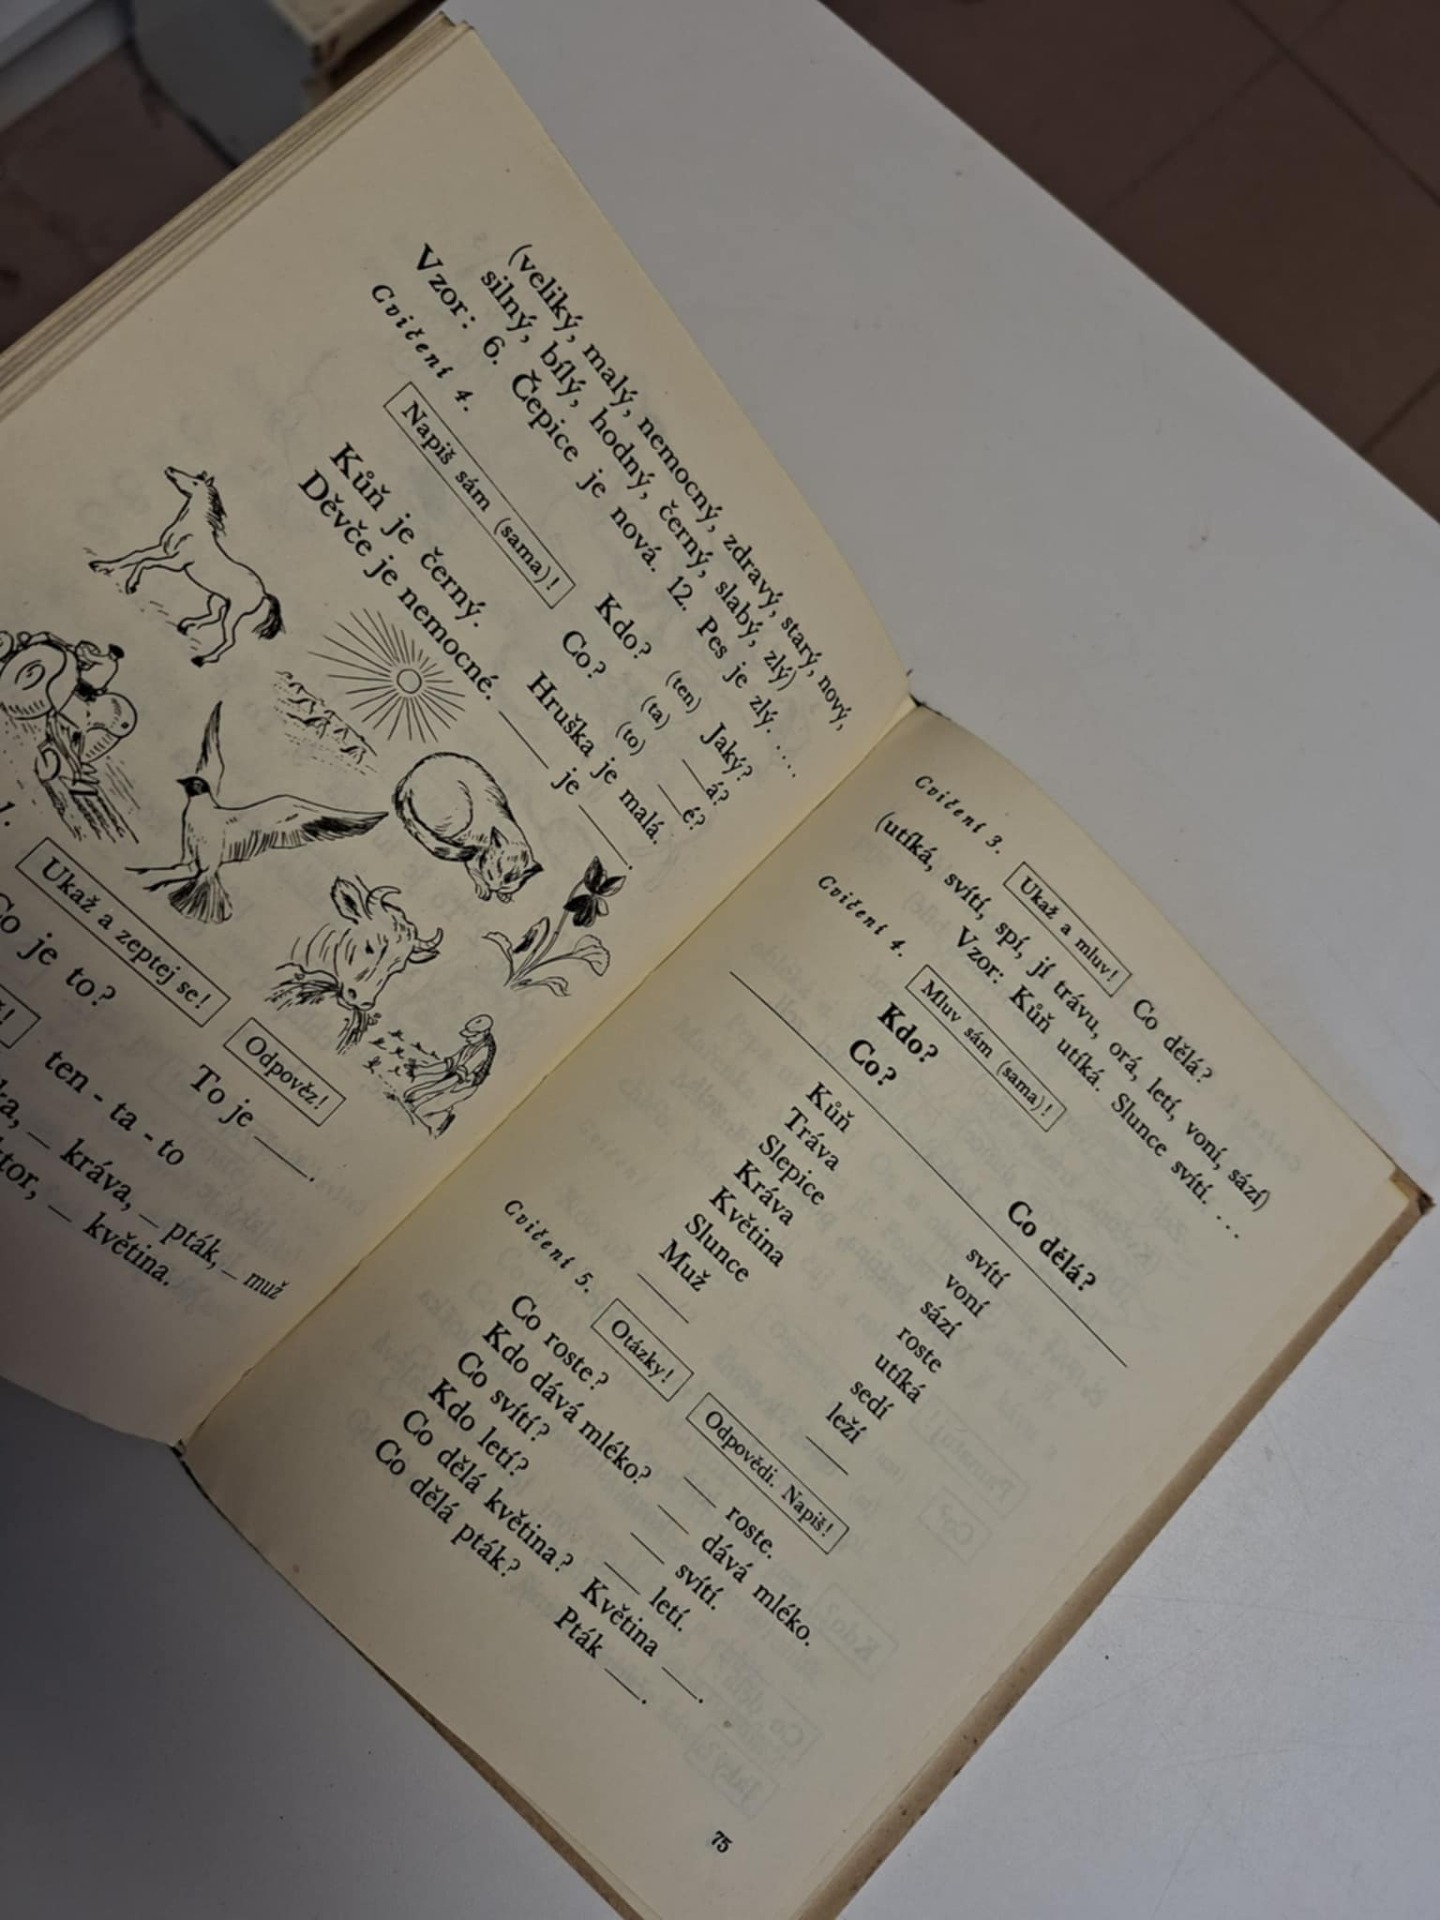 (veliký, malý, nemocný, zdravý, starý, nový,
silný, bílý, hodný, černý, slabý, zlý)
Vzor: 6. Čepice je nová. 12. Pes je zlý. ....
Cvičení 4.
Napiš sám (sama)!
Kdo? (ten) Jaký?
Co? (ta) __á?
(to) __é?
Kůň je černý. Hruška je malá.
Děvče je nemocné. ___ je ___.
1.
Ukaž a zeptej se!
Odpověz!
Co je to? To je ___.
ten - ta - to
_ kráva, _ pták, _ muž
_ květina.
Cvičení 3.
Ukaž a mluv!
Co dělá?
(utíká, svítí, spí, jí trávu, orá, letí, voní, sází)
Vzor: Kůň utíká. Slunce svítí. ...
Cvičení 4.
Mluv sám (sama)!
Kdo?
Co? Co dělá?
Kůň svítí
Tráva voní
Slepice sází
Kráva roste
Květina utíká
Slunce sedí
Muž leží
___ ___
Cvičení 5.
Otázky!
Odpovědi. Napiš!
Co roste? __ roste.
Kdo dává mléko? __ dává mléko.
Co svítí? __ svítí.
Kdo letí? __ letí.
Co dělá květina? Květina ___.
Co dělá pták? Pták ___.
75